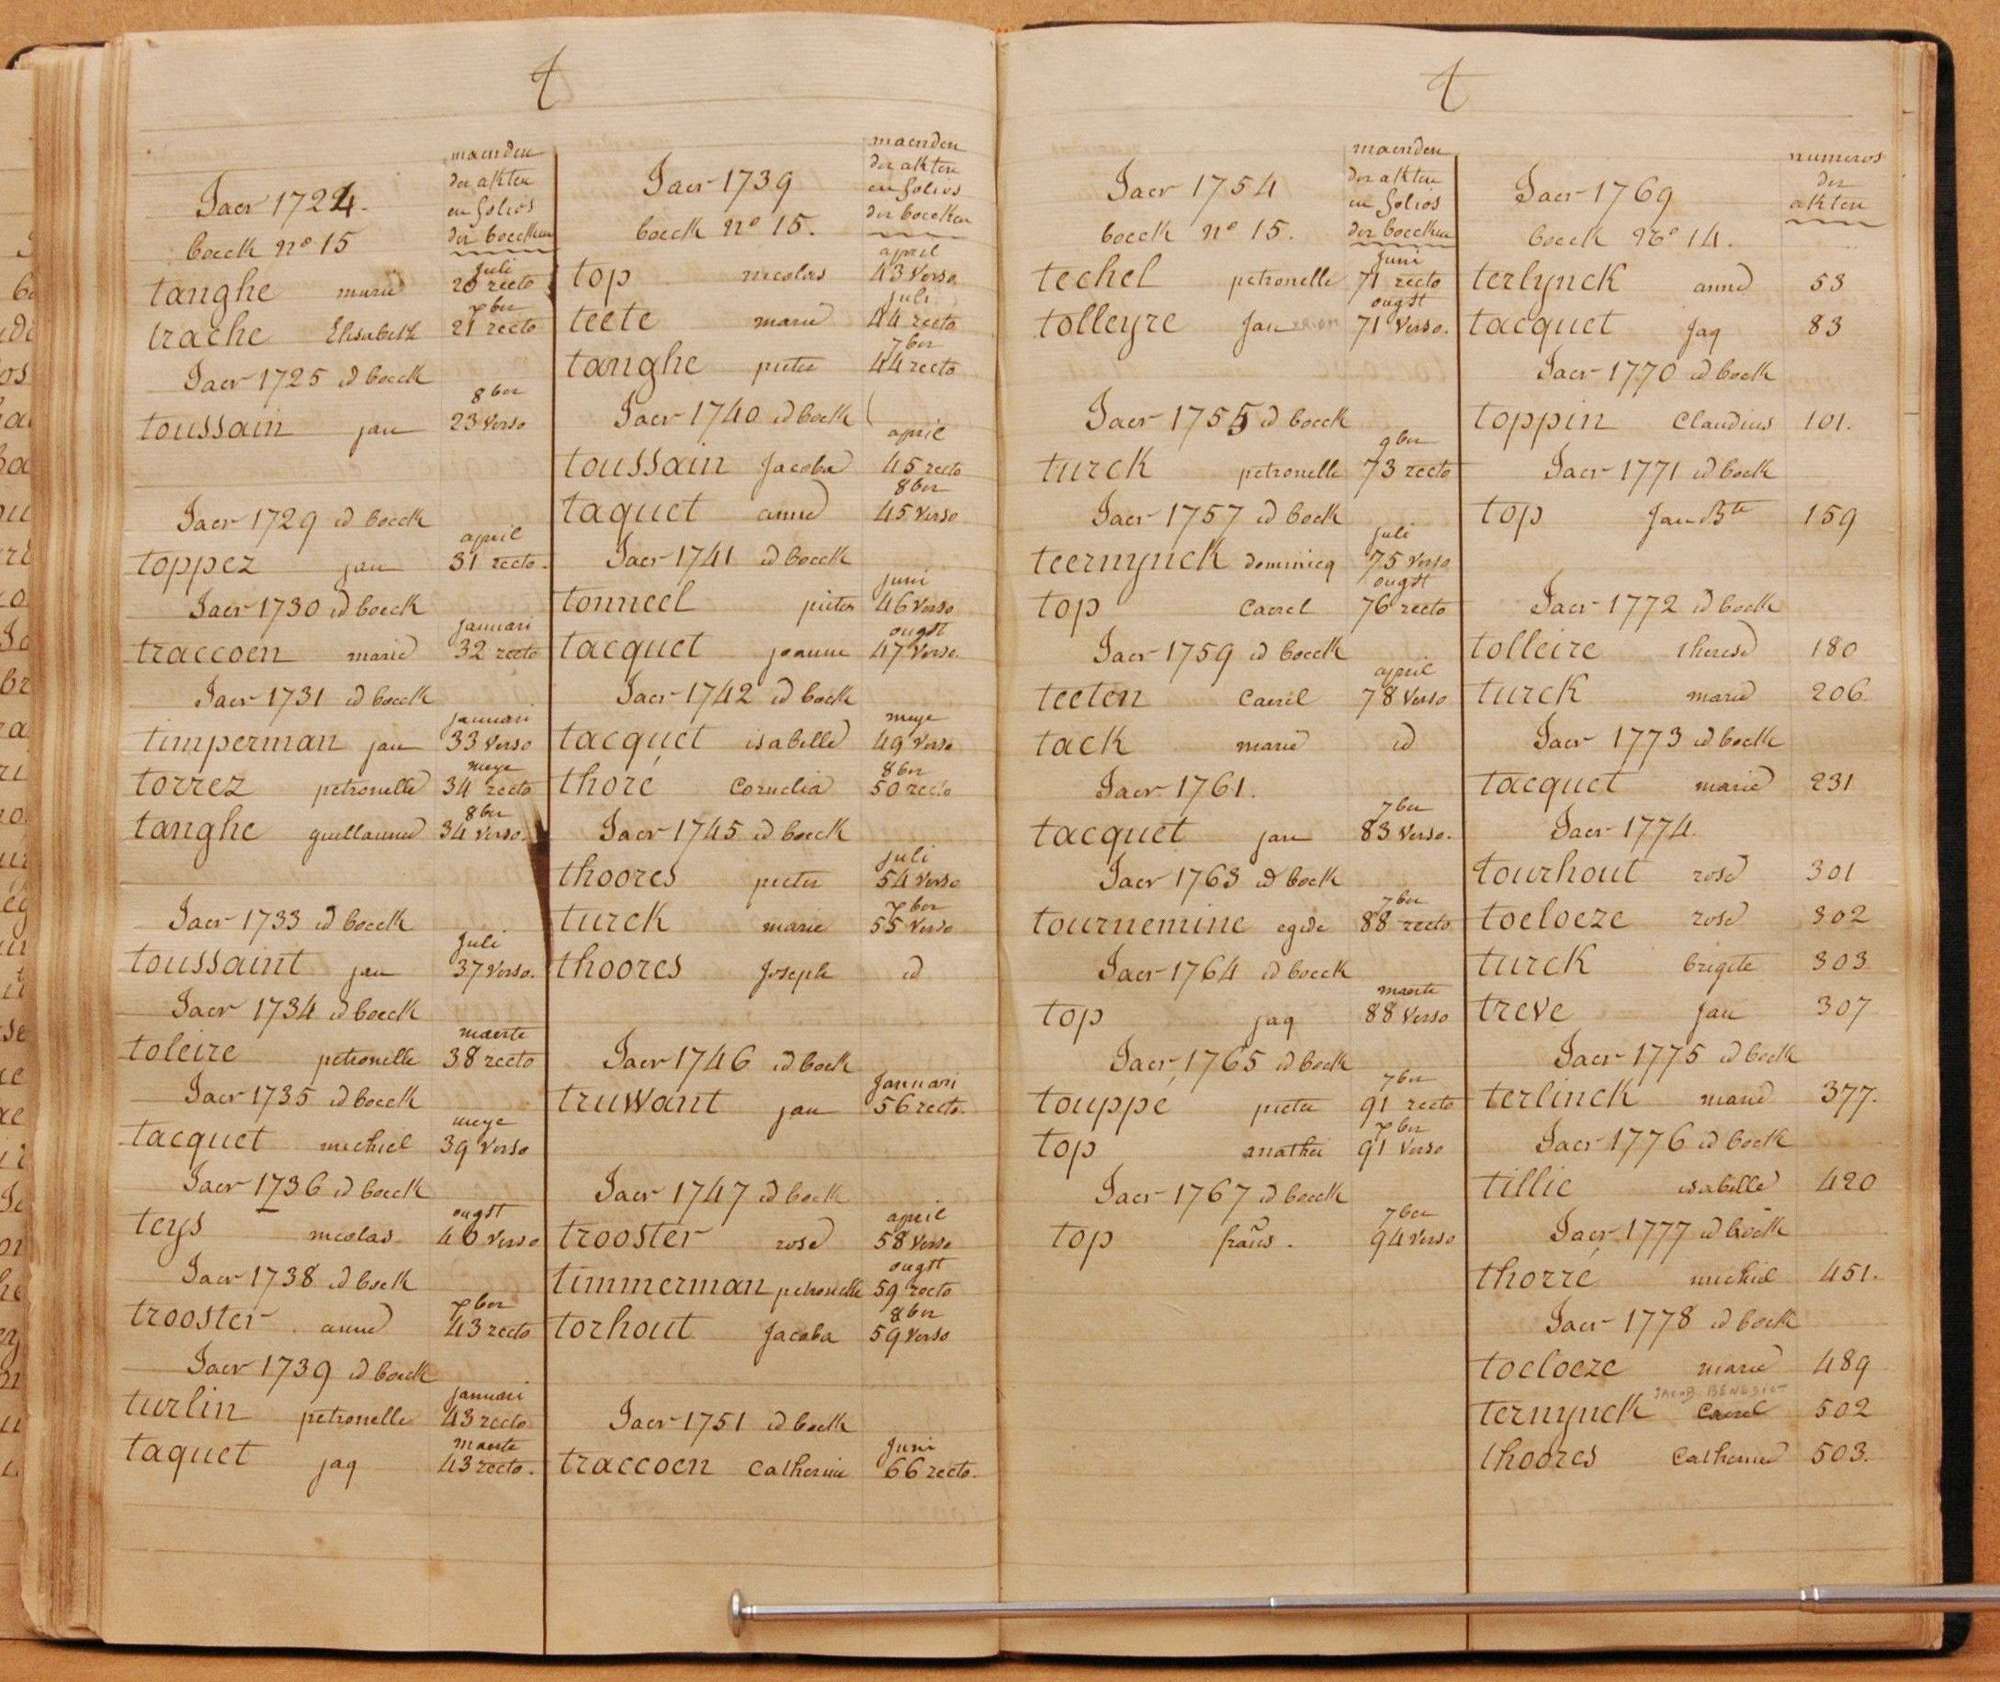 t
maenden
der akten
en folios
der boecken
Jaer 1724.
boeck nº 15
juli
tanghe marie 20 recto
7ber
trache Elisabeth 21 recto
Jaer 1725 id boeck
8ber
toussain jan 23 verso
Jaer 1729 id boeck
april
toppez jan 31 recto.
Jaer 1730 id boeck
januari
traccoen marie 32 recto
Jaer 1731 id boeck
januari
timperman jan 33 verso
meye
torrez petronelle 34 recto
8ber
tanghe guillaume 34 verso.
Jaer 1733 id boeck
juli
toussaint jan 37 verso.
Jaer 1734 id boeck
maerte
toleire petronelle 38 recto
Jaer 1735 id boeck
meye
tacquet michiel 39 verso
Jaer 1736 id boeck
ougst
teys nicolas 40 verso
Jaer 1738 id boeck
7ber
trooster anne 43 recto
Jaer 1739 id boeck
januari
turlin petronelle 43 recto
maerte
taquet jaq 43 recto.
maenden
der akten
en folios
der boecken
Jaer 1739
boeck nº 15.
april
top nicolas 43 verso
juli
teete marie 44 recto
7ber
tanghe pieter 44 recto
Jaer 1740 id boeck
april
toussain Jacoba 45 recto
8ber
taquet anne 45 verso
Jaer 1741 id boeck
juni
tonneel pieter 46 verso
ougst
tacquet joanne 47 verso.
Jaer 1742 id boeck
meye
tacquet isabelle 49 verso
8ber
thoré Cornelia 50 recto
Jaer 1745 id boeck
juli
thoores pieter 54 verso
7ber
turck marie 55 verso
thoores Joseph id
Jaer 1746 id boek
Januari
truwant jan 56 recto.
Jaer 1747 id boek
april
trooster rose 58 verso
ougst
timmerman petronelle 59 recto
8ber
torhout Jacoba 59 verso
Jaer 1751 id boek
Juni
traccoen Catherine 66 recto.
t
maenden
der akten
en folios
der boecken
Jaer 1754
boeck nº 15.
juni
techel petronelle 71 recto
ougst
tolleyre Jan 71 verso.
Jaer 1755 id boeck
9ber
turck petronelle 73 recto
Jaer 1757 id boek
juli
teernynck dominicq 75 verso
ougst
top Caerel 76 recto
Jaer 1759 id boeck
april
teeten Caerel 78 verso
tack marie id
Jaer 1761.
7ber
tacquet jan 83 verso.
Jaer 1763 id boek
7ber
tournemine egide 88 recto
Jaer 1764 id boeck
maerte
top jaq 88 verso
Jaer 1765 id boeck
7ber
touppé pieter 91 recto
7ber
top mathei 91 verso
Jaer 1767 id boeck
7ber
top frañs. 94 verso
numeros
der
akten
Jaer 1769
boeck Nº 14.
terlynck anne 53
tacquet Jaq 83
Jaer 1770 id boek
toppin Claudius 101.
Jaer 1771 id boek
top Jan Bte 159
Jaer 1772 id boek
tolleire therese 180
turck marie 206
Jaer 1773 id boek
tacquet marie 231
Jaer 1774.
tourhout rose 301
toeloeze rose 302
turck brigite 303
treve Jan 307
Jaer 1775 id boek
terlinck marie 377.
Jaer 1776 id boek
tillie isabelle 420
Jaer 1777 id boek
thorré michiel 451.
Jaer 1778 id boek
toeloeze marie 489
JACOB BENEDICT
ternynck Caerel 502
thoores Catherine 503.